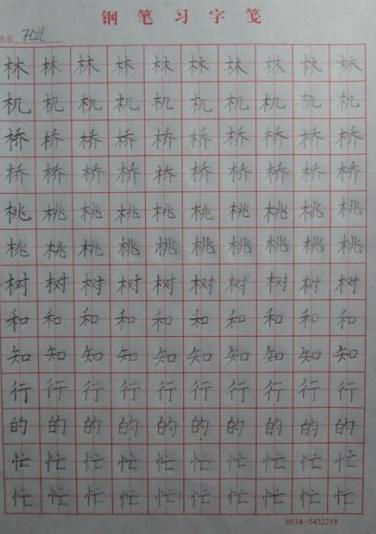 钢笔习字笺
林林林林林林林林林林
机机机机机机机机机机
桥桥桥桥桥桥桥桥桥桥
桥桥桥桥桥桥桥桥桥桥
桃桃桃桃桃桃桃桃桃桃
桃桃桃桃桃桃桃桃桃桃
树树树树树树树树树树
和和和和和和和和和和
知知知知知知知知知知
行行行行行行行行行行
的的的的的的的的的的
忙忙忙忙忙忙忙忙忙忙
忙忙忙忙忙忙忙忙忙忙
0534-5452218